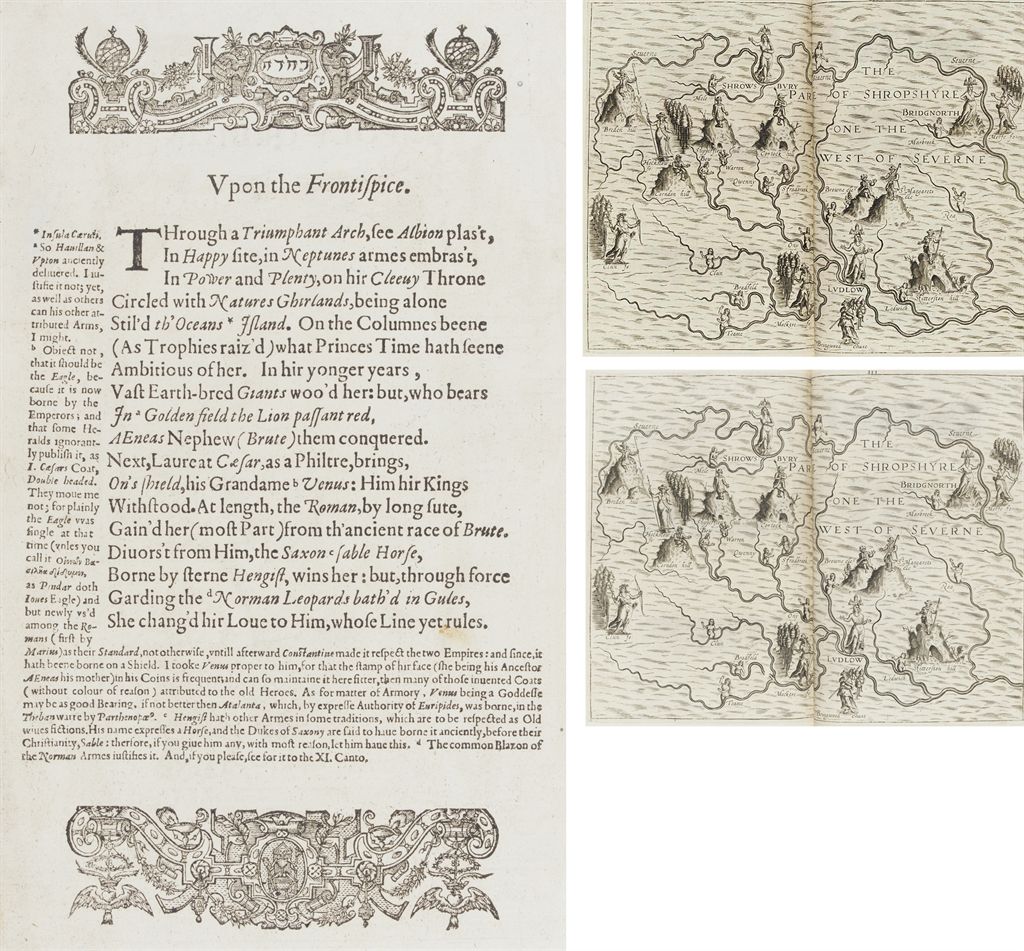 Vpon the Frontiſpice.
THrough a Triumphant Arch, ſee Albion plas't,
In Happy ſite, in Neptunes armes embras't,
In Power and Plenty, on hir Cleeuy Throne
Circled with Natures Ghirlands, being alone
Stil'd th'Oceans * Iſland. On the Columnes beene
(As Trophies raiz'd) what Princes Time hath ſeene
Ambitious of her. In hir yonger years,
Vaſt Earth-bred Giants woo'd her: but, who bears
In a Golden field the Lion paſſant red,
AEneas Nephew (Brute) them conquered.
Next, Laureat Cæſar, as a Philtre, brings,
On's ſhield, his Grandame b Venus: Him hir Kings
Withſtood. At length, the Roman, by long ſute,
Gain'd her (moſt Part) from th'ancient race of Brute.
Diuors't from Him, the Saxon c ſable Horſe,
Borne by ſterne Hengiſt, wins her: but, through force
Garding the d Norman Leopards bath'd in Gules,
She chang'd hir Loue to Him, whoſe Line yet rules.
* Inſula Cæruli.
a So Hauillan &
Vpton anciently
deliuered. I iu-
ſtifie it not; yet,
as well as others
can his other at-
tributed Arms,
I might.
b Obiect not,
that it ſhould be
the Eagle, be-
cauſe it is now
borne by the
Emperors; and
that ſome He-
ralds ignorant-
ly publiſh it, as
I. Cæſars Coat,
Double headed.
They moue me
not; for plainly
the Eagle vvas
ſingle at that
time (vnles you
call it
as Pindar doth
Ioues Eagle) and
but newly vs'd
among the Ro-
mans (firſt by
Marius) as their Standard, not otherwiſe, vntill afterward Conſtantine made it reſpect the two Empires: and ſince, it
hath beene borne on a Shield. I tooke Venus proper to him, for that the ſtamp of hir face (ſhe being his Anceſtor
AEneas his mother) in his Coins is frequent; and can ſo maintaine it here fitter, then many of thoſe inuented Coats
(without colour of reaſon) attributed to the old Heroes. As for matter of Armory, Venus being a Goddeſſe
may be as good Bearing, if not better then Atalanta, which, by expreſſe Authority of Euripides, was borne, in the
Theban warre by Parthenopæ9. c Hengiſt hath other Armes in ſome traditions, which are to be reſpected as Old
wiues fictions. His name expreſſes a Horſe, and the Dukes of Saxony are ſaid to haue borne it anciently, before their
Chriſtianity, Sable: therfore, if you giue him any, with moſt reaſon, let him haue this. d The common Blazon of
the Norman Armes iuſtifies it. And, if you pleaſe, ſee for it to the XI. Canto.
Seuerne
Seuerne
THE
SHROWSBVRY
PART OF SHROPSHYRE
Mele
BRIDGNORTH
Breden hill
Corbeck
ONE THE
Marbrook
WEST OF SEVERNE
Warren
Corndon hill
Owenny
Stradbrok
Browne clé
St Margarets clé
Rea
Clun fo
Bradfeld
LVDLOW
Titterston hill
Ledwich
Teame
Seuerne
Seuerne
THE
SHROWSBVRY
PART OF SHROPSHYRE
Mele
BRIDGNORTH
Breden hill
Corbeck
ONE THE
Marbrook
WEST OF SEVERNE
Warren
Corndon hill
Owenny
Stradbrok
Browne clé
St Margarets clé
Rea
Clun fo
Bradfeld
LVDLOW
Titterston hill
Ledwich
Teame